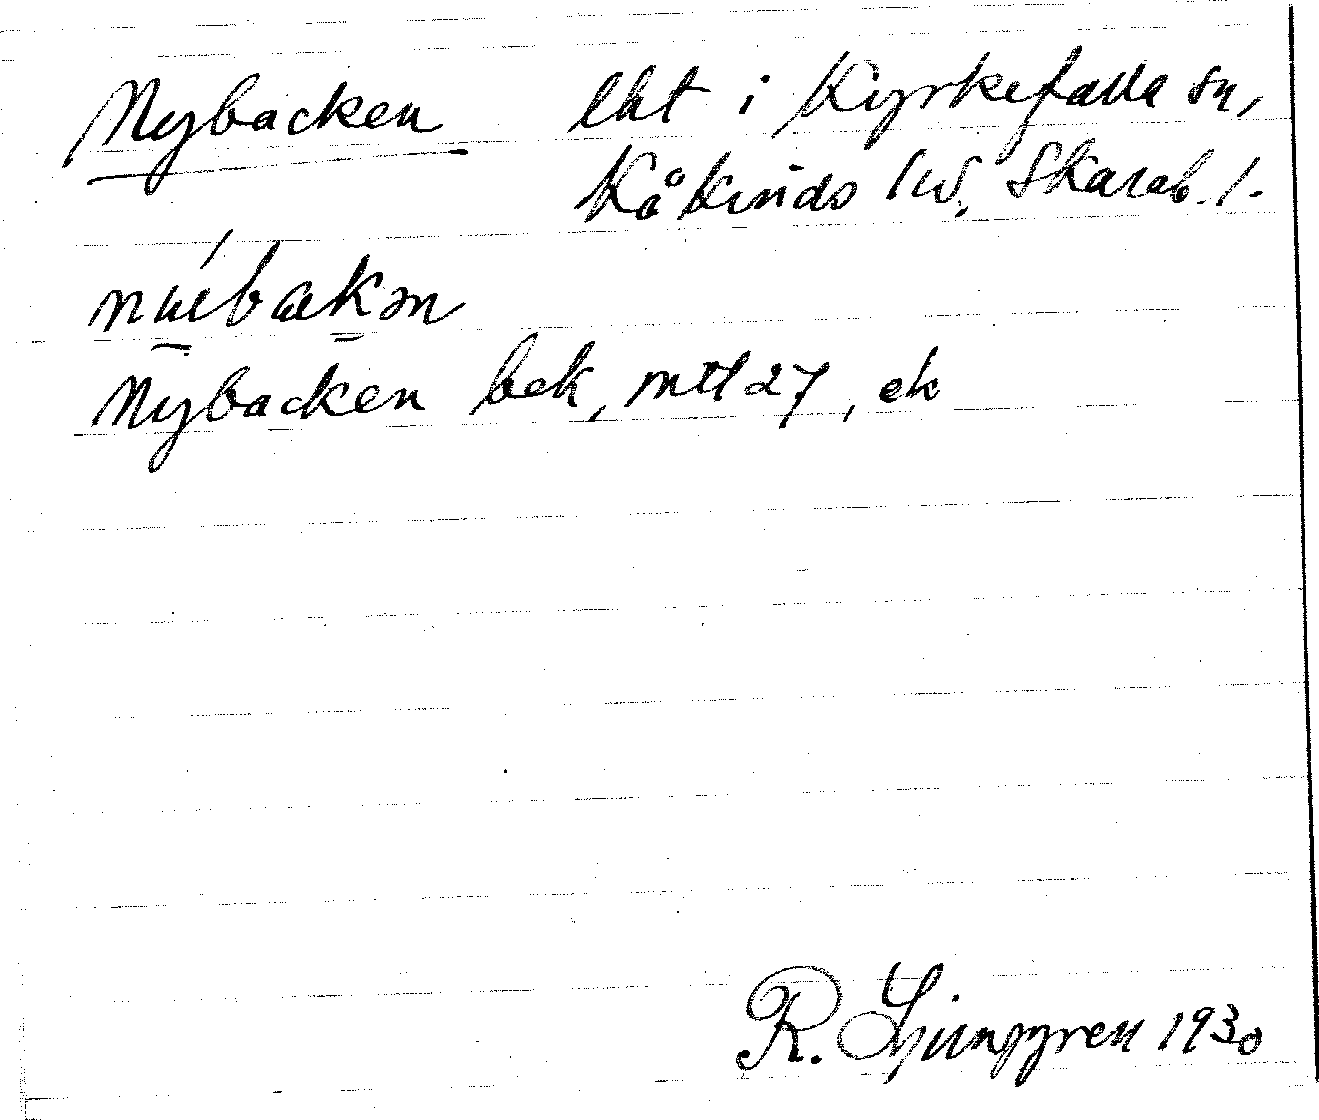 Nybacken lht i Kyrkefalla sn,
Kåkinds hd. Skarab. l.
Nybacken bek, mtl 27, ek
R. Ljunggren 1930